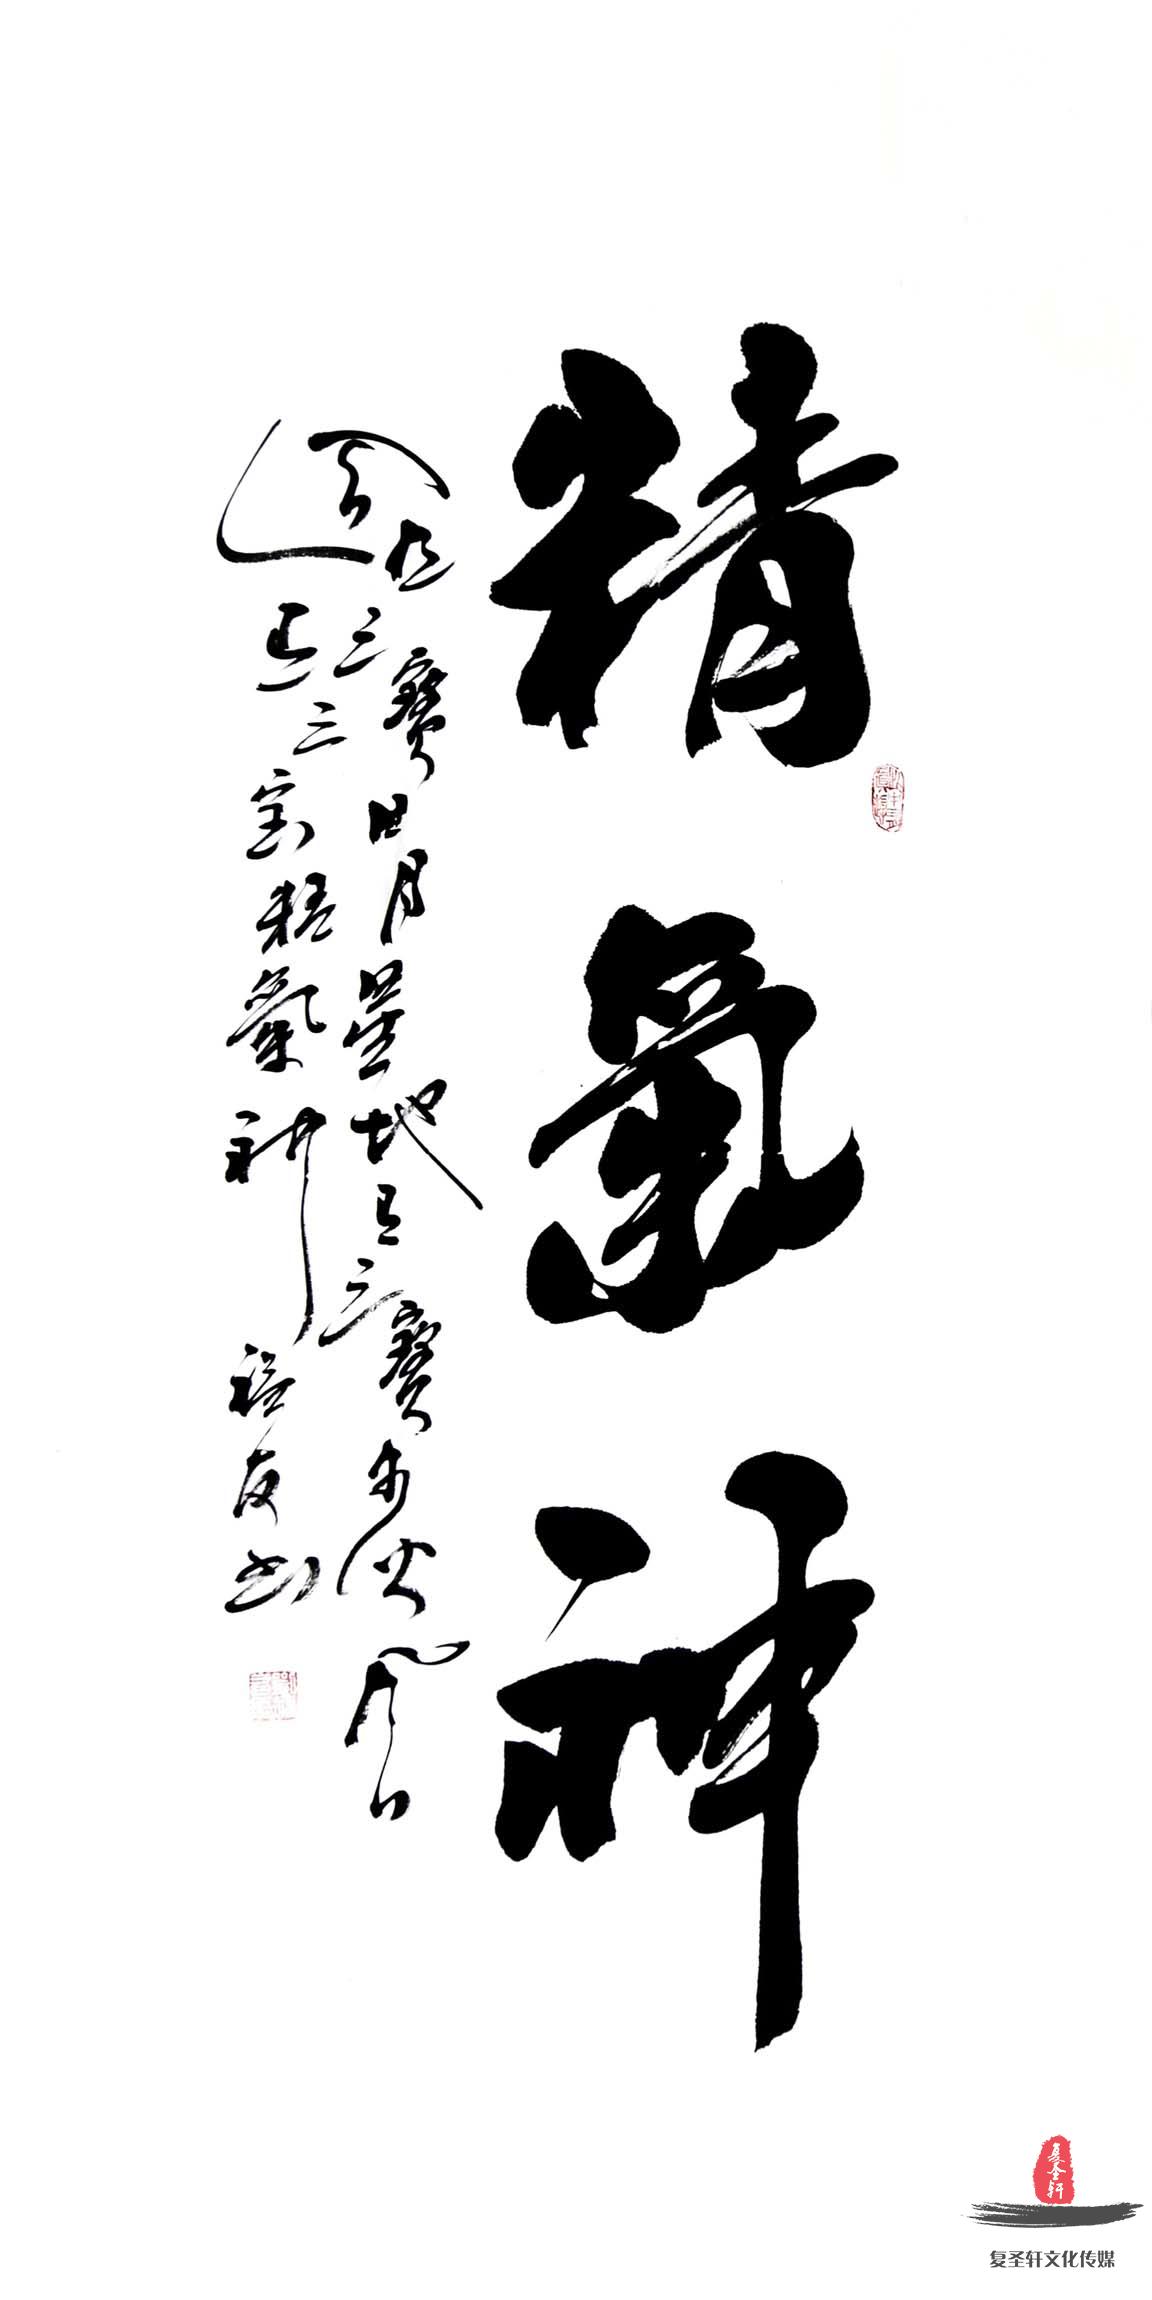 精氣神
天有三寶日月星地有三寶水火風
人有三宝精氣神福友书
复圣轩
复圣轩文化传媒